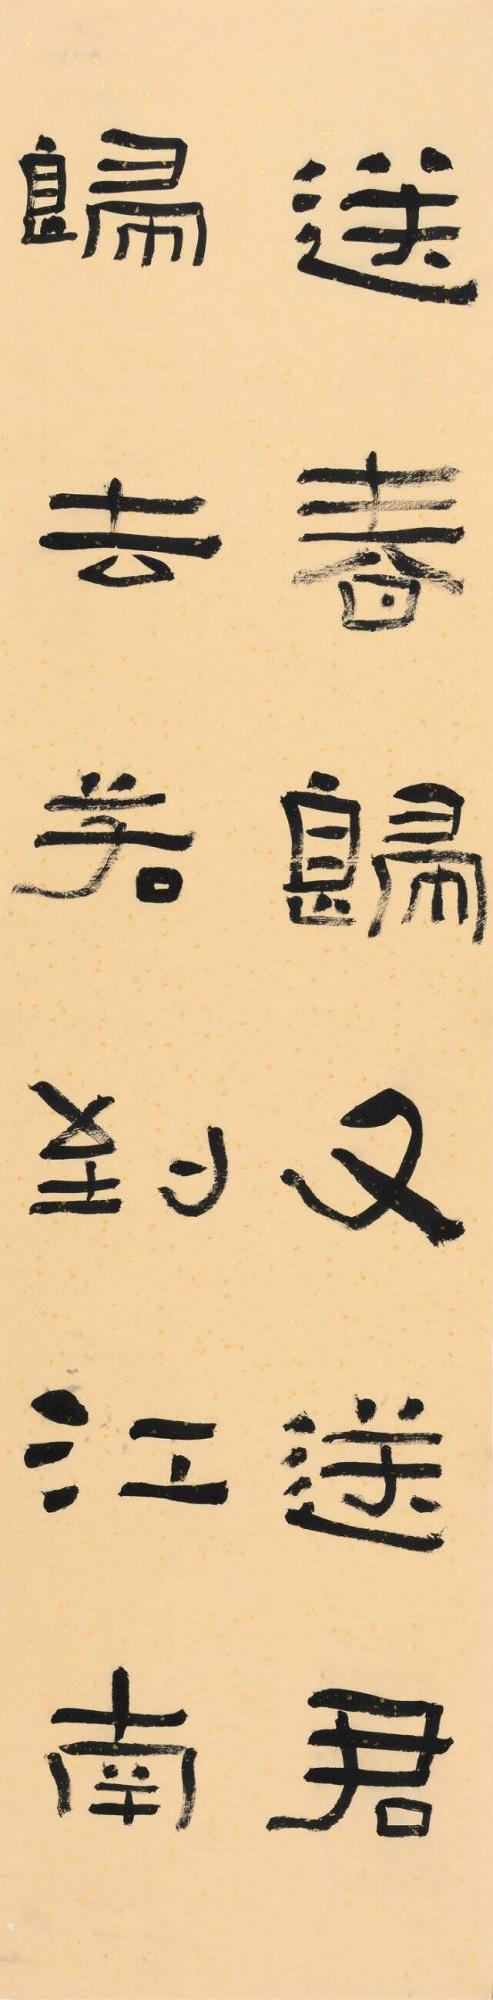 送春歸又送君
歸去若到江南